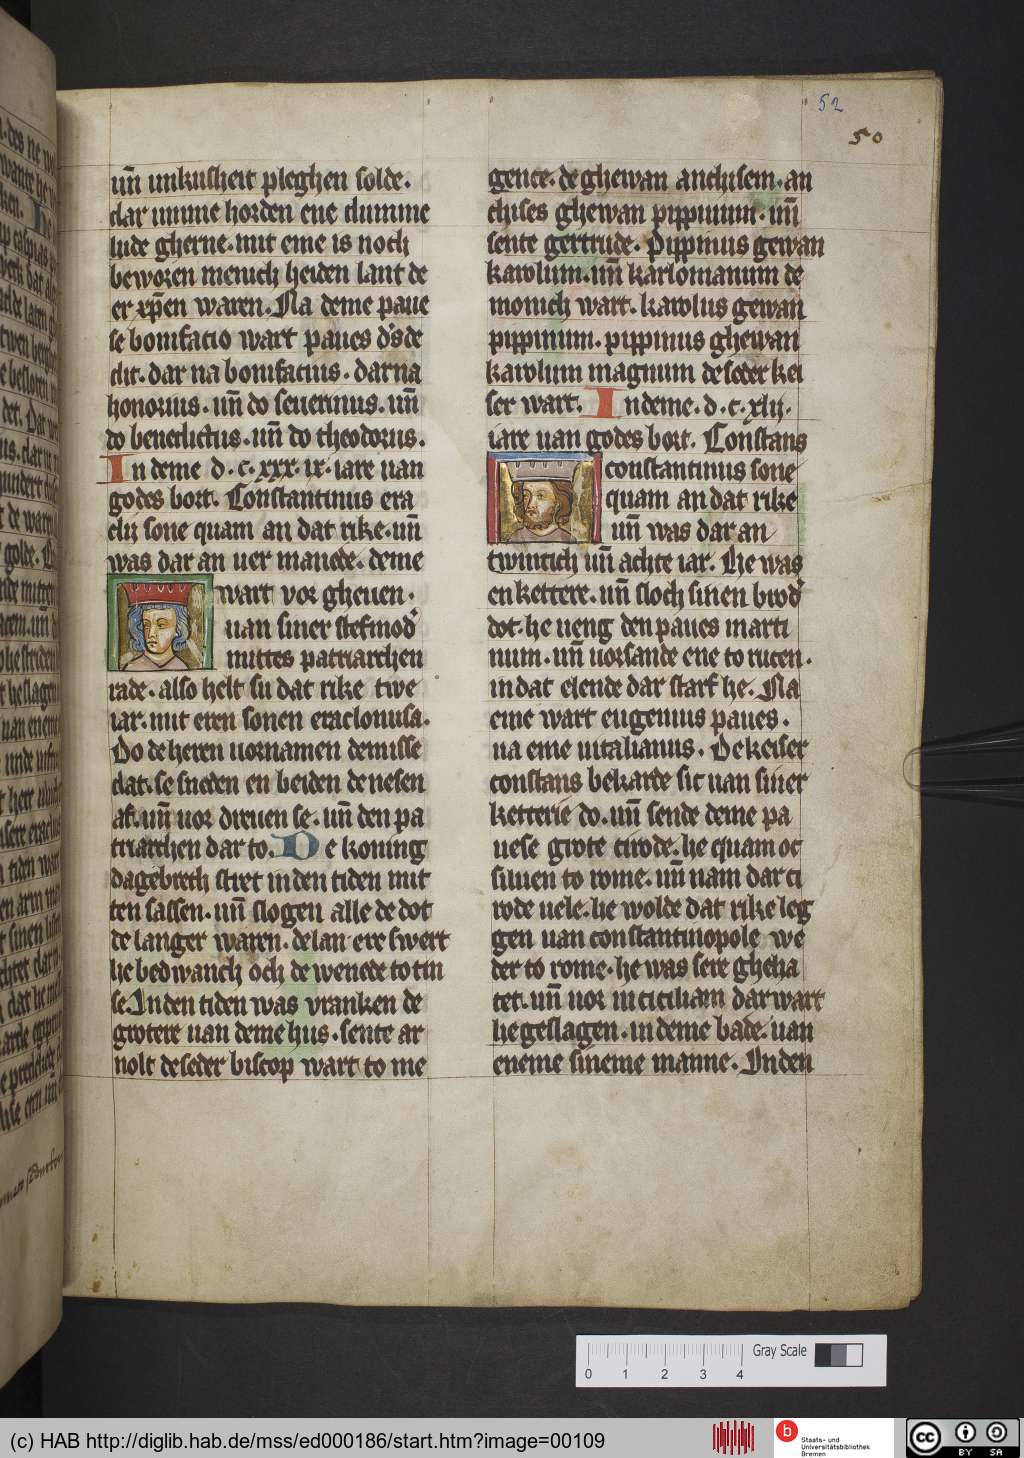 52
50
un̄ unkusheit pleghen solde.
dar umme horden ene dumme
lude gherne. mit eme is noch
beworen menich heiden lant de
er xp̄en waren. Na deme paue
se bonifacio wart paues d's de
dit. dar na bonifacius. dar na
honorius. un̄ do seuerinus. un̄
do benedictus. un̄ do theodorus.
In deme d.c.xxx.ix. iare uan
godes bort. Constantinus era
clij sone quam an dat rike. un̄
was dar an uer manede. deme
wart vor gheuen.
uan siner stefmod'
mittes patriarchen
rade. also helt su dat rike twe
iar. mit eren sonen eraclonusa.
Do de heren uornamen de misse
dat. se sneden en beiden de nesen
af. un̄ uor dreuen se. un̄ den pa
triarchen dar to. De koning
dagebrech stret in den tiden mit
ten sassen. un̄ slogen alle de dot
de langer waren. de lan ere swert
he bedwanch och de wenede to tin
se. In den tiden was vranken de
grotere uan deme hus. sente ar
nolt de seder biscop wart to me
gence. de ghewan anchisem. an
chises ghewan pippinum. un̄
sente gertrude. Pippinus gewan
karolum. un̄ karlomanum de
monich wart. karolus gewan
pippinum. pippinus ghewan
karolum magnum de seder kei
ser wart. In deme. d.c.xlij.
iare uan godes bort. Constans
constantinus sone
quam an dat rike
un̄ was dar an
twintich un̄ achte iar. He was
en kettere. un̄ sloch sinen brod'
dot. he ueng den paues marti
num. un̄ uorsande ene to rucen.
in dat elende dar starf he. Na
eme wart eugenius paues.
na eme uitalianus. De keiser
constans bekarde sic uan siner
ketterie do. un̄ sende deme pa
uese grote cirode. he quam oc
siluen to rome. un̄ nam dar ci
rode uele. he wolde dat rike leg
gen uan constantinopole we
der to rome. he was sere gheha
tet. un̄ uor in ciciliam dar wart
he geslagen. in deme bade. uan
eneme sineme manne. In den
Gray Scale
0 1 2 3 4
(c) HAB http://diglib.hab.de/mss/ed000186/start.htm?image=00109
b
Staats- und
Universitätsbibliothek
Bremen
cc
BY SA